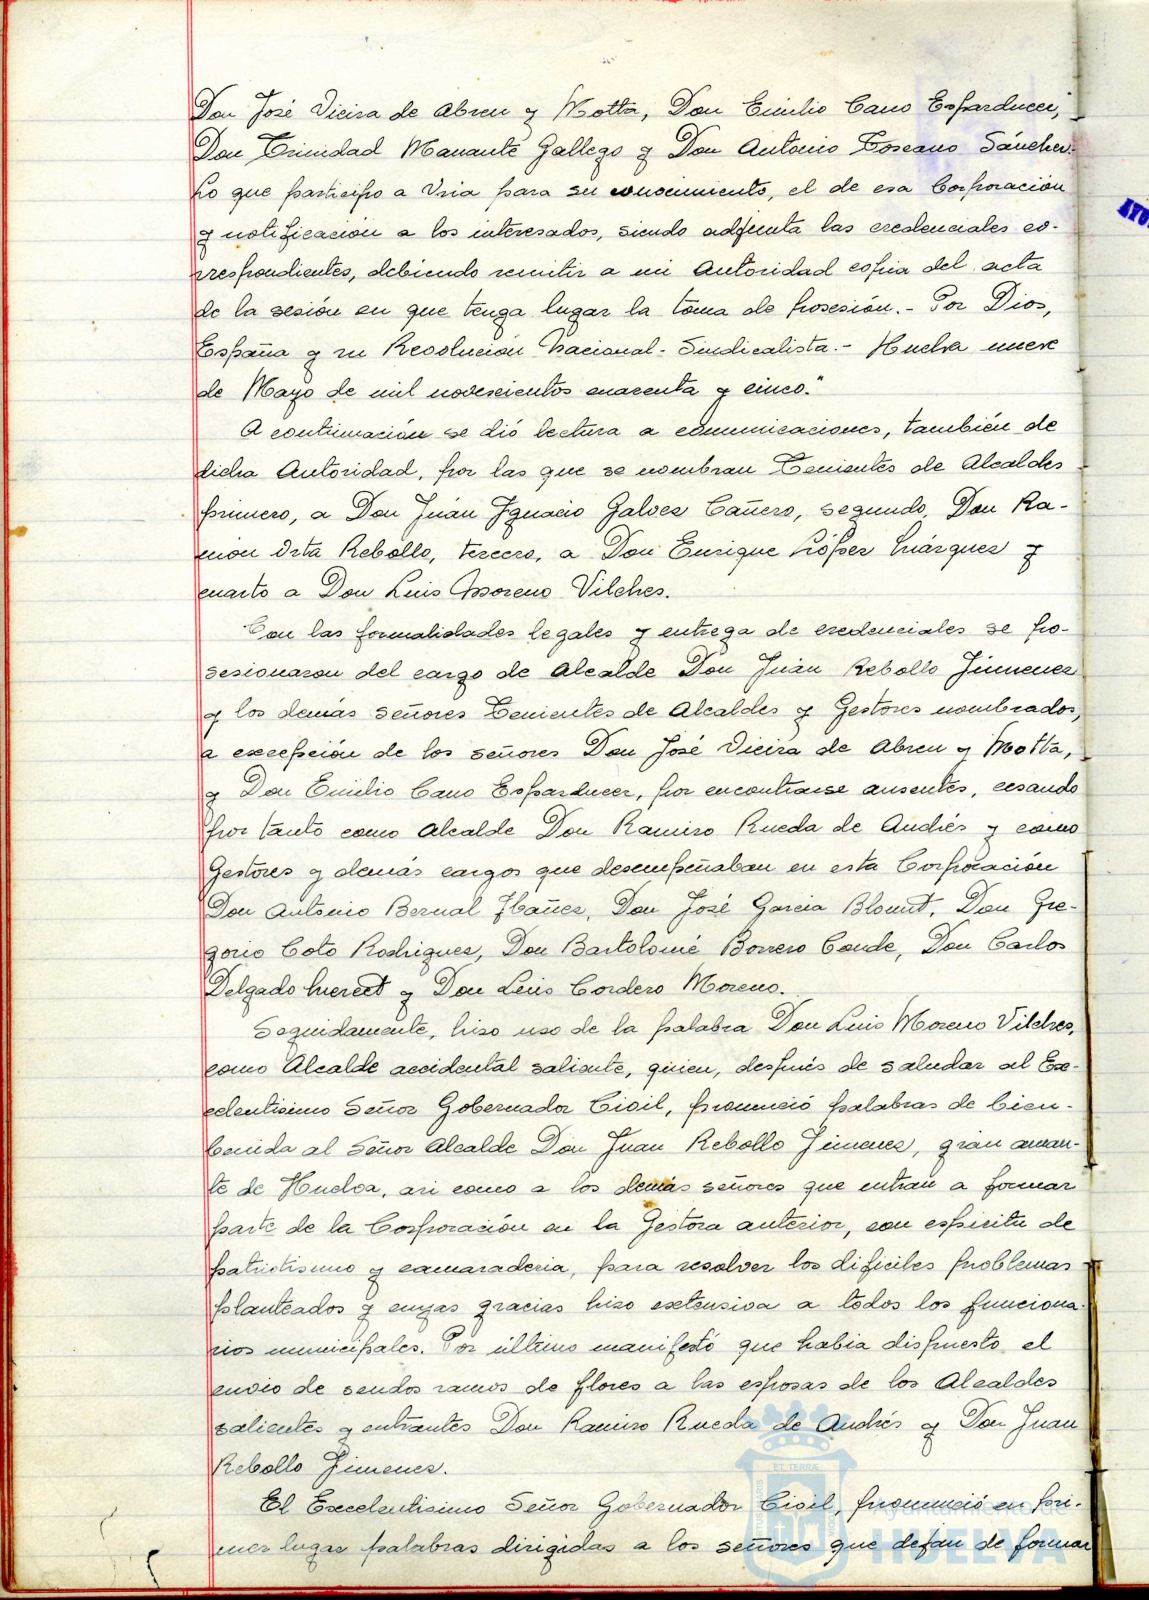 Don José Vieira de Abreu y Motta, Don Emilio Cano Esparducer,
Don Trinidad Manante Gallego y Don Antonio Toscano Sánchez.
Lo que participo a Vria para su conocimiento, el de esa Corporación
y notificación a los interesados, siendo adjunta las credenciales co-
rrespondientes, debiendo remitir a mi Autoridad copia del acta
de la sesión en que tenga lugar la toma de posesión.- Por Dios,
España y su Revolución Nacional-Sindicalista.- Huelva nueve
de Mayo de mil novescientos cuarenta y cinco."
A continuación se dió lectura a comunicaciones, también de
dicha Autoridad, por las que se nombran Tenientes de Alcaldes
primero, a Don Juan Ygnacio Galvez Cañero, segundo, Don Ra-
món Orta Rebollo, tercero, a Don Enrique López Márquez y
cuarto a Don Luis Moreno Vilches.
Con las formalidades legales y entrega de credenciales se po-
sesionaron del cargo de Alcalde Don Juan Rebollo Jimenez
y los demás señores Tenientes de Alcaldes y Gestores nombrados,
a excepción de los señores Don José Vieira de Abreu y Motta,
y Don Emilio Cano Esparducer, por encontrarse ausentes, cesando
por tanto como Alcalde Don Ramiro Rueda de Andrés y como
Gestores y demás cargos que desempeñaban en esta Corporación
Don Antonio Bernal Ibañez, Don José Garcia Blount, Don Gre-
gorio Coto Rodriguez, Don Bartolomé Borrero Conde, Don Carlos
Delgado y Don Luis Cordero Moreno.
Seguidamente, hizo uso de la palabra Don Luis Moreno Vilches,
como Alcalde accidental saliente, quien, después de saludar al Exc-
celentisimo Señor Gobernador Civil, pronunció palabras de bien-
benida al Señor Alcalde Don Juan Rebollo Jimenez, gran aman-
te de Huelva, asi como a los demás señores que entran a formar
parte de la Corporación en la Gestora anterior, con espiritu de
patriotismo y camaraderia, para resolver los dificiles problemas
planteados y cuyas gracias hizo extensiva a todos los funciona-
rios municipales. Por último manifestó que habia dispuesto el
envio de sendos ramos de flores a las esposas de los Alcaldes
salientes y entrantes Don Ramiro Rueda de Andrés y Don Juan
Rebollo Jimenez.
El Excelentisimo Señor Gobernador Civil, pronunció en pri-
mer lugar palabras dirigidas a los señores que dejan de formar
Ayuntamiento de
HUELVA